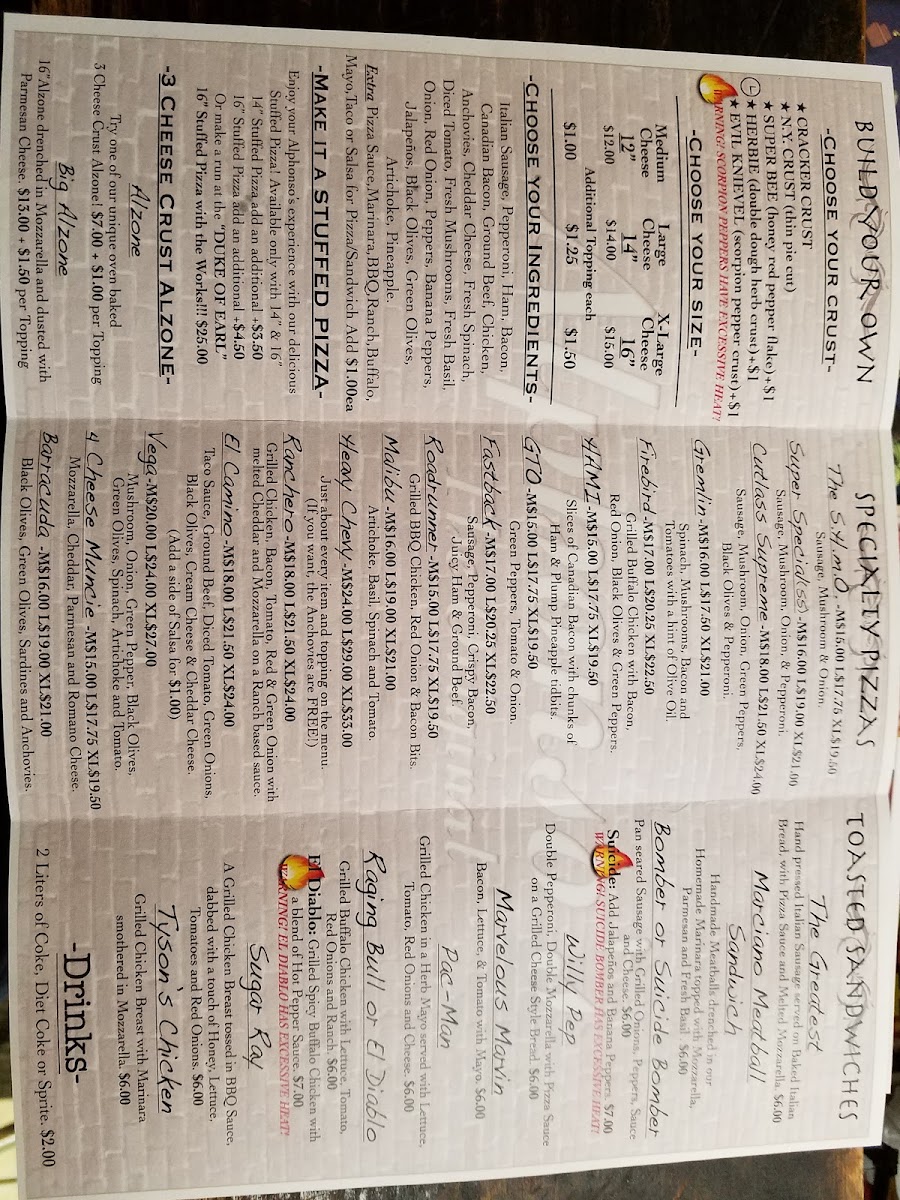 BUILD YOUR OWN
-CHOOSE YOUR CRUST-
★ CRACKER CRUST
★ N.Y. CRUST (thin pie cut)
★ SUPER BEE (honey red pepper flake)+$1
★ HERBIE (double dough herb crust)+$1
★ EVIL KNIEVEL (scorpion pepper crust)+$1
WARNING! SCORPION PEPPERS HAVE EXCESSIVE HEAT!
-CHOOSE YOUR SIZE-
Medium Large X-Large
Cheese Cheese Cheese
12" 14" 16"
$12.00 $14.00 $15.00
Additional Topping each
$1.00 $1.25 $1.50
-CHOOSE YOUR INGREDIENTS-
Italian Sausage, Pepperoni, Ham, Bacon,
Canadian Bacon, Ground Beef, Chicken,
Anchovies, Cheddar Cheese, Fresh Spinach,
Diced Tomato, Fresh Mushrooms, Fresh Basil,
Onion, Red Onion, Peppers, Banana Peppers,
Jalapeños, Black Olives, Green Olives,
Artichoke, Pineapple.
Extra Pizza Sauce,Marinara,BBQ,Ranch,Buffalo,
Mayo,Taco or Salsa for Pizza/Sandwich Add $1.00ea
-MAKE IT A STUFFED PIZZA-
Enjoy your Alphonso's experience with our delicious
Stuffed Pizza! Available only with 14" & 16"
14" Stuffed Pizza add an additional +$3.50
16" Stuffed Pizza add an additional +$4.50
Or make a run at the "DUKE OF EARL"
16" Stuffed Pizza with the Works!!! $25.00
-3 CHEESE CRUST ALZONE-
Alzone
Try one of our unique oven baked
3 Cheese Crust Alzone! $7.00 + $1.00 per Topping
Big Alzone
16" Alzone drenched in Mozzarella and dusted with
Parmesan Cheese. $15.00 + $1.50 per Topping
SPECIALTY PIZZAS
The S.M.O. -M$15.00 L$17.75 XL$19.50
Sausage, Mushroom & Onion.
Super Special(ss) -M$16.00 L$19.00 XL$21.00
Sausage, Mushroom, Onion, & Pepperoni.
Cutlass Supreme -M$18.00 L$21.50 XL$24.00
Sausage, Mushroom, Onion, Green Peppers,
Black Olives & Pepperoni.
Gremlin -M$16.00 L$17.50 XL$21.00
Spinach, Mushrooms, Bacon and
Tomatoes with a hint of Olive Oil.
Firebird -M$17.00 L$20.25 XL$22.50
Grilled Buffalo Chicken with Bacon,
Red Onion, Black Olives & Green Peppers.
HAMI -M$15.00 L$17.75 XL$19.50
Slices of Canadian Bacon with chunks of
Ham & Plump Pineapple tidbits.
GTO -M$15.00 L$17.75 XL$19.50
Green Peppers, Tomato & Onion.
Fastback -M$17.00 L$20.25 XL$22.50
Sausage, Pepperoni, Crispy Bacon,
Juicy Ham & Ground Beef.
Roadrunner -M$15.00 L$17.75 XL$19.50
Grilled BBQ Chicken, Red Onion & Bacon Bits.
Malibu -M$16.00 L$19.00 XL$21.00
Artichoke, Basil, Spinach and Tomato.
Heavy Chevy -M$24.00 L$29.00 XL$33.00
Just about every item and topping on the menu.
(If you want, the Anchovies are FREE!)
Ranchero -M$18.00 L$21.50 XL$24.00
Grilled Chicken, Bacon, Tomato, Red & Green Onion with
melted Cheddar and Mozzarella on a Ranch based sauce.
El Camino -M$18.00 L$21.50 XL$24.00
Taco Sauce, Ground Beef, Diced Tomato, Green Onions,
Black Olives, Cream Cheese & Cheddar Cheese.
(Add a side of Salsa for $1.00)
Vega -M$20.00 L$24.00 XL$27.00
Mushroom, Onion, Green Pepper, Black Olives,
Green Olives, Spinach, Artichoke and Tomato.
4 Cheese Muncie -M$15.00 L$17.75 XL$19.50
Mozzarella, Cheddar, Parmesan and Romano Cheese.
Barracuda -M$16.00 L$19.00 XL$21.00
Black Olives, Green Olives, Sardines and Anchovies.
TOASTED SANDWICHES
The Greatest
Hand pressed Italian Sausage served on Baked Italian
Bread, with Pizza Sauce and Melted Mozzarella. $6.00
Marciano Meatball
Sandwich
Handmade Meatballs drenched in our
Homemade Marinara topped with Mozzarella,
Parmesan and Fresh Basil. $6.00
Bomber or Suicide Bomber
Pan seared Sausage with Grilled Onions, Peppers, Sauce
and Cheese. $6.00
Suicide: Add Jalapeños and Banana Peppers. $7.00
WARNING! SUICIDE BOMBER HAS EXCESSIVE HEAT!
Willy Pep
Double Pepperoni, Double Mozzarella with Pizza Sauce
on a Grilled Cheese Style Bread. $6.00
Marvelous Marvin
Bacon, Lettuce, & Tomato with Mayo. $6.00
Pac-Man
Grilled Chicken in a Herb Mayo served with Lettuce,
Tomato, Red Onions and Cheese. $6.00
Raging Bull or El Diablo
Grilled Buffalo Chicken with Lettuce, Tomato,
Red Onions and Ranch. $6.00
El Diablo: Grilled Spicy Buffalo Chicken with
a blend of Hot Pepper Sauce. $7.00
WARNING! EL DIABLO HAS EXCESSIVE HEAT!
Sugar Ray
A Grilled Chicken Breast tossed in BBQ Sauce,
dabbed with a touch of Honey, Lettuce,
Tomatoes and Red Onions. $6.00
Tyson's Chicken
Grilled Chicken Breast with Marinara
smothered in Mozzarella. $6.00
-Drinks-
2 Liters of Coke, Diet Coke or Sprite. $2.00